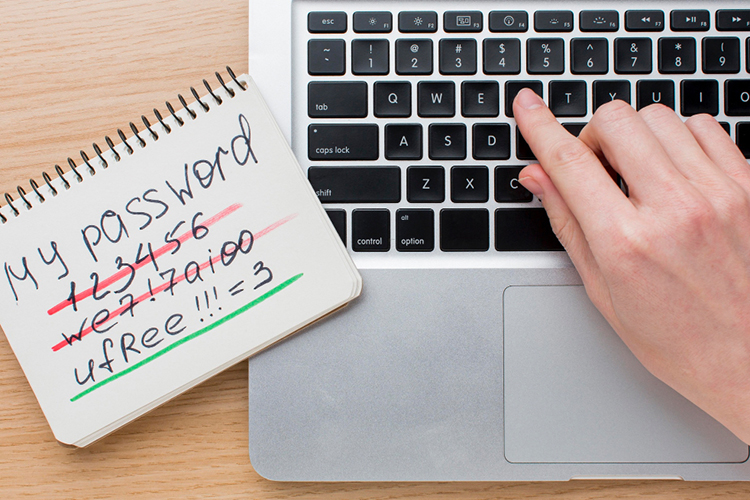 My password
123456
we7!7aioo
ufRee!!!=3
esc F1 F2 F3 F4 F5 F6 F7 F8 F9
~ ` ! 1 @ 2 # 3 $ 4 % 5 ^ 6 & 7 * 8 ( 9
tab Q W E T Y U I O
caps lock A S D
shift Z X C
control alt option